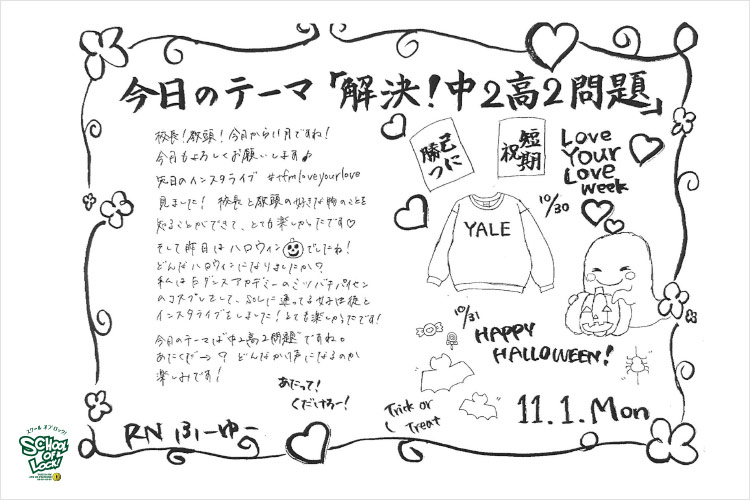 今日のテーマ「解決！中2高2問題」
校長！教頭！今日から11月ですね！
今月もよろしくお願いします♪
先日のインスタライブ #tfmloveyourlove
見ました！校長と教頭の好きな物のことを
知ることができて、とても楽しかったです♡
そして昨日はハロウィン🎃でしたね！
どんなハロウィンになりましたか？
私はEダンスアカデミーのミツバチパイセン
のコスプレをして、SOLに通ってる女子生徒と
インスタライブをしました！とても楽しかったです！
今日のテーマは"中2高2問題"ですね。
あたくだ→？どんなかけ声になるのか
楽しみです！
あたって！
くだけろー！
RN ふーゆー
己に
勝つ
短期
祝
Love
Your
Love
Week
10/30
YALE
10/31
HAPPY
HALLOWEEN!
Trick or
Treat
11.1.Mon
スクール オブ ロック!
SCHOOL
OF
LOCK!